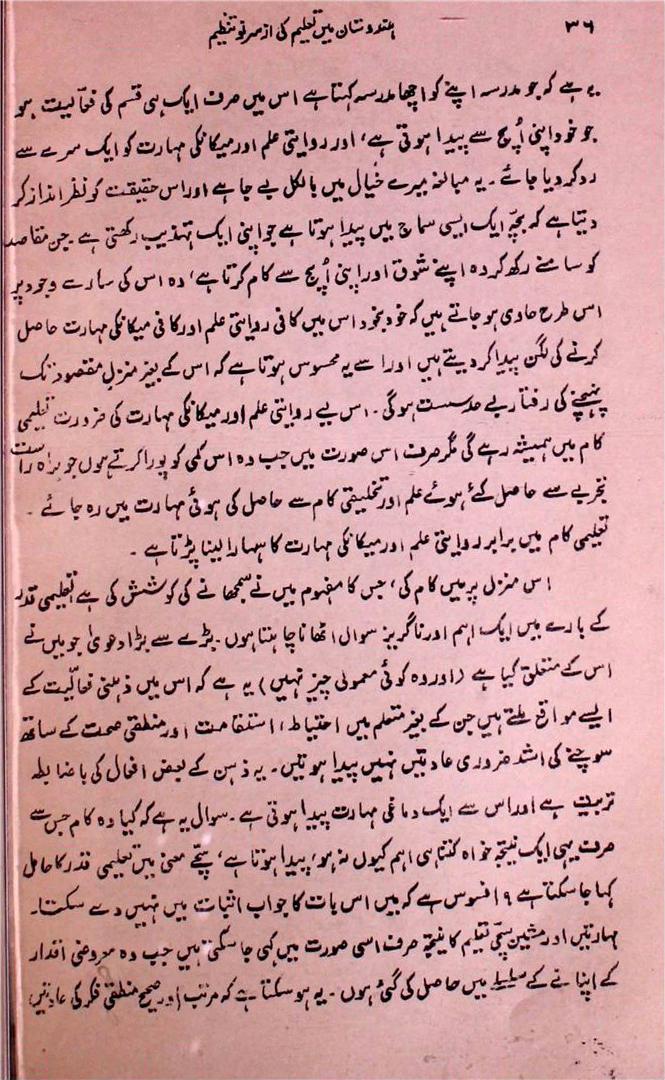 ۳۶
ہندوستان میں تعلیم کی از سرِ نو تنظیم
یہ ہے کہ جو مدرسہ اپنے کو اچھا مدرسہ کہتا ہے اس میں صرف ایک ہی قسم کی فعالیت ہو
جو خود اپنی اُپج سے پیدا ہوتی ہے، اور روایتی علم اور میکانکی مہارت کو ایک سرے سے
رد کر دیا جائے۔ یہ مبالغہ میرے خیال میں بالکل بے جا ہے اور اس حقیقت کو نظر انداز کر
دیتا ہے کہ بچّہ ایک ایسی سماج میں پیدا ہوتا ہے جو اپنی ایک تہذیب رکھتی ہے۔ جن مقاصد
کو سامنے رکھ کر وہ اپنے شوق اور اپنی اُپج سے کام کرتا ہے، وہ اس کی سارے وجود پر
اس طرح حاوی ہو جاتے ہیں کہ خود بخود اس میں کافی روایتی علم اور کافی میکانکی مہارت حاصل
کرنے کی لگن پیدا کر دیتے ہیں اور اسے یہ محسوس ہوتا ہے کہ اس کے بغیر منزلِ مقصود تک
پہنچنے کی رفتار بے حد سست ہوگی۔ اس لیے روایتی علم اور میکانکی مہارت کی ضرورت تعلیمی
کام میں ہمیشہ رہے گی مگر صرف اس صورت میں جب وہ اس کمی کو پورا کرتے ہوں جو براہ راست
تجربے سے حاصل کئے ہوئے علم اور تخلیقی کام سے حاصل کی ہوئی مہارت میں رہ جائے۔
تعلیمی کام میں برابر روایتی علم اور میکانکی مہارت کا سہارا لینا پڑتا ہے۔
اس منزل پر میں کام کی، جس کا مفہوم میں نے سمجھانے کی کوشش کی ہے تعلیمی قدر
کے بارے میں ایک اہم اور ناگریز سوال اٹھانا چاہتا ہوں۔ بڑے سے بڑا دعویٰ جو میں نے
اس کے متعلق کیا ہے (اور وہ کوئی معمولی چیز نہیں) یہ ہے کہ اس میں ذہنی فعالیت کے
ایسے مواقع ملتے ہیں جن کے بغیر متعلم میں احتیاط، استقامت اور منطقی صحت کے ساتھ
سوچنے کی اشد ضروری عادتیں نہیں پیدا ہوتیں۔ یہ ذہن کے بعض افعال کی باضابطہ
تربیت ہے اور اس سے ایک دماغی مہارت پیدا ہوتی ہے۔ سوال یہ ہے کہ کیا وہ کام جس سے
صرف یہی ایک نتیجہ خواہ کتنا ہی اہم کیوں نہ ہو، پیدا ہوتا ہے، سچّے معنیٰ میں تعلیمی قدر کا حامل
کہا جا سکتا ہے؟ افسوس ہے کہ میں اس بات کا جواب اثبات میں نہیں دے سکتا۔
مہارتیں اور مشین سچّی تعلیم کا نتیجہ صرف اسی صورت میں کہی جا سکتی ہیں جب وہ معروضی اقدار
کے اپنانے کے سلسلے میں حاصل کی گئی ہوں۔ یہ ہو سکتا ہے کہ مرتب اور صحیح منطقی فکر کی عادتیں